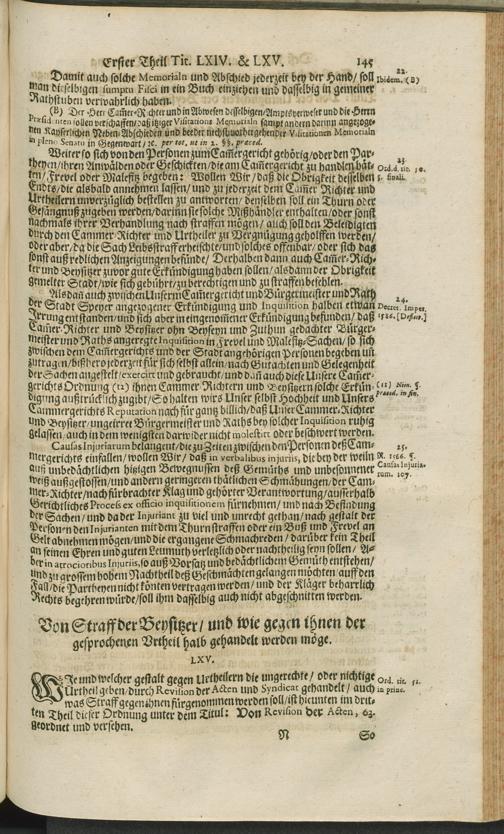 Erster Theil Tit. LXIV. & LXV. 145
Damit auch solche Memorialn und Abschied jederzeit bey der Hand / soll
man dieselbigen sumptu Fisci in ein Buch einziehen und dasselbig in gemeiner
Rathstuben verwahrlich haben.
22.
Ibidem. (B)
(B) Der Herr Cam̃er-Richter und in Abwesen desselbigen / Amptsverweser und die Herrn
Præsidenten sollen verschaffen / daß itziger Visitations Memorialn sampt andern darinn angezoge-
nen Kayserlichen Neben Abschieden und beeder nechstvorhergehender Visitationen Memorialn
in pleno Senatu in Gegenwart / ꝛc. per tot. ut in 2. §§. præced.
Weiter so sich von den Personen zum Cam̃ergericht gehörig / oder den Par-
theyen / ihren Anwälden oder Geschickten / die am Cam̃ergericht zu handlen hät-
ten / Frevel oder Malefitz begeben: Wollen Wir / daß die Obrigkeit desselben
Endts / die alsbald annehmen lassen / und zu jederzeit dem Cam̃er Richter und
Urtheilern unverzüglich bestellen zu antworten / denselben soll ein Thurn oder
Gefängnuß zugeben werden / darinn sie solche Mißhändler enthalten / oder sonst
nachmals ihrer Verhandlung nach straffen mögen / auch soll den Beleidigten
durch den Cammer-Richter und Urtheiler zu Vergnügung geholffen werden /
oder aber / da die Sach Leibsstraff erheischt / und solches offenbar / oder sich das
sonst auß redlichen Anzeigungen befünde / Derhalben dann auch Cam̃er-Rich-
ter und Beysitzer zuvor gute Erkündigung haben sollen / alsdann der Obrigkeit
gemelter Stadt / wie sich gebührt / zu berechtigen und zu straffen befehlen.
23.
Ord. d. tit. 50.
§. finali.
Als dañ auch zwischen Unserm Cam̃ergericht und Bürgermeister und Rath
der Stadt Speyer angezogener Erkündigung und Inquisition halben etwan
Irrung entstanden / und sich aber in eingenommener Erkündigung befunden / daß
Cam̃er-Richter und Beysitzer ohn Beyseyn und Zuthun gedachter Bürger-
meister und Raths angeregte Inquisition in Frevel und Malefitz-Sachen / so sich
zwischen dem Cam̃ergerichts und der Stadt angehörigen Personen begeben uñ
zutragen / bißhero jederzeit für sich selbst allein / nach Gutachten und Gelegenheit
der Sachen angestelt / exercirt und gebraucht / und dañ auch diese Unsere Cam̃er-
gerichts Ordnung (12) ihnen Cammer Richtern und Beysitzern solche Erkün-
digung außtrücklich zugibt / So halten wirs Unser selbst Hochheit und Unsers
Cammergerichts Reputation nach für gantz billich / daß Unser Cammer-Richter
und Beysitzer / ungeirret Bürgermeister und Raths bey solcher Inquisition ruhig
gelassen / auch in dem wenigsten darwider nicht molestirt oder beschwert werden.
24.
Decret. Imper.
1586. [Desuet.]
(12) Nim. §.
præced. in fin.
Causas Injuriarum belangent / die zu Zeiten zwischen den Personen deß Cam-
mergerichts einfallen / wollen Wir / daß in verbalibus injuriis, die bey der weiln
auß unbedächtlichen hitzigen Bewegnussen deß Gemüths und unbesonnener
weiß außgestossen / und andern geringeren thätlichen Schmähungen / der Cam-
mer-Richter / nach fürbrachter Klag und gehörter Verantwortung / ausserhalb
Gerichtliches Process ex officio inquisitionem fürnehmen / und nach Befindung
der Sachen / und da der Injuriant zu viel und unrecht gethan / nach gestalt der
Personen den Injurianten mit dem Thurn straffen oder ein Buß und Frevel an
Gelt abnehmen mögen / und die ergangene Schmachreden / darüber kein Theil
an seinen Ehren und guten Leumuth verletzlich oder nachtheilig seyn sollen / A-
ber in atrocioribus Injuriis, so auß Vorsatz und bedächtlichem Gemüth entstehen /
und zu grossem hohem Nachtheil deß Geschmächten gelangen möchten / auff den
Fall / die Partheyen nicht könten vertragen werden / und der Kläger beharrlich
Rechts begehren würde / soll ihm dasselbig auch nicht abgeschnitten werden.
25.
R. 1566. §.
Causas Injuria-
rum. 107.
Von Straff der Beysitzer / und wie gegen ihnen der
gesprochenen Urtheil halb gehandelt werden möge.
LXV.
WIe und welcher gestalt gegen Urtheilern die ungerechte / oder nichtige
Urtheil geben / durch Revision der Acten und Syndicat gehandelt / auch
was Straff gegen ihnen fürgenommen werden soll / ist hieunten im drit-
ten Theil dieser Ordnung unter dem Titul: Von Revision der Acten, 63.
geordnet und versehen.
Ord. tit. 51.
in princ.
N So